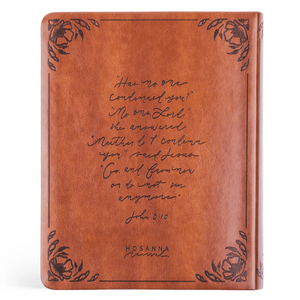 "Has no one
condemned you?"
"No one, Lord"
she answered
"Neither do I condemn
you" said Jesus
"Go and from now
on do not sin
anymore"
John 8:10
HOSANNA
Revival